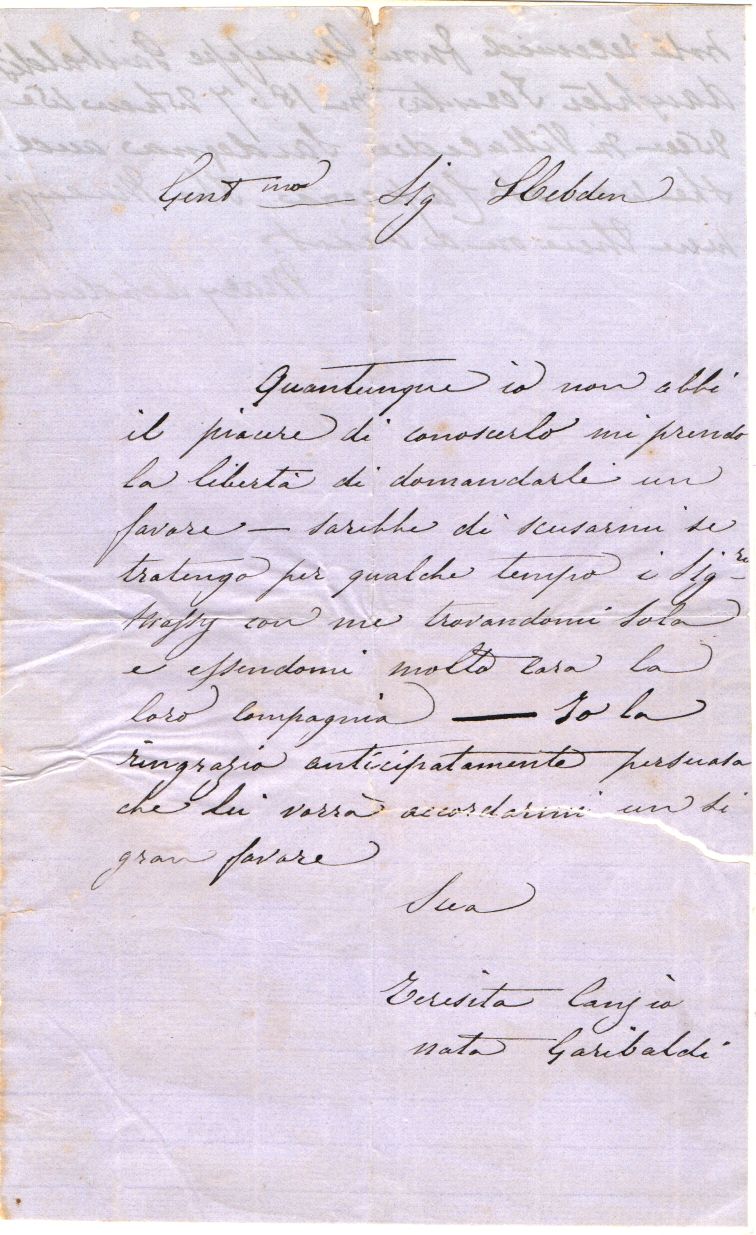 Gent mo Sig Hebden
Quantunque io non abbi
il piacere di conoscerlo mi prendo
la libertà di domandarle un
favore — sarebbe di scusarmi se
tratengo per qualche tempo i Sig ri
con me trovandomi sola
e essendomi molto cara la
loro Compagnia — Io la
ringrazio anticipatamente persuasa
che lei vorrà accordarmi un si
gran favore
Sua
Teresita Canzio
nata Garibaldi